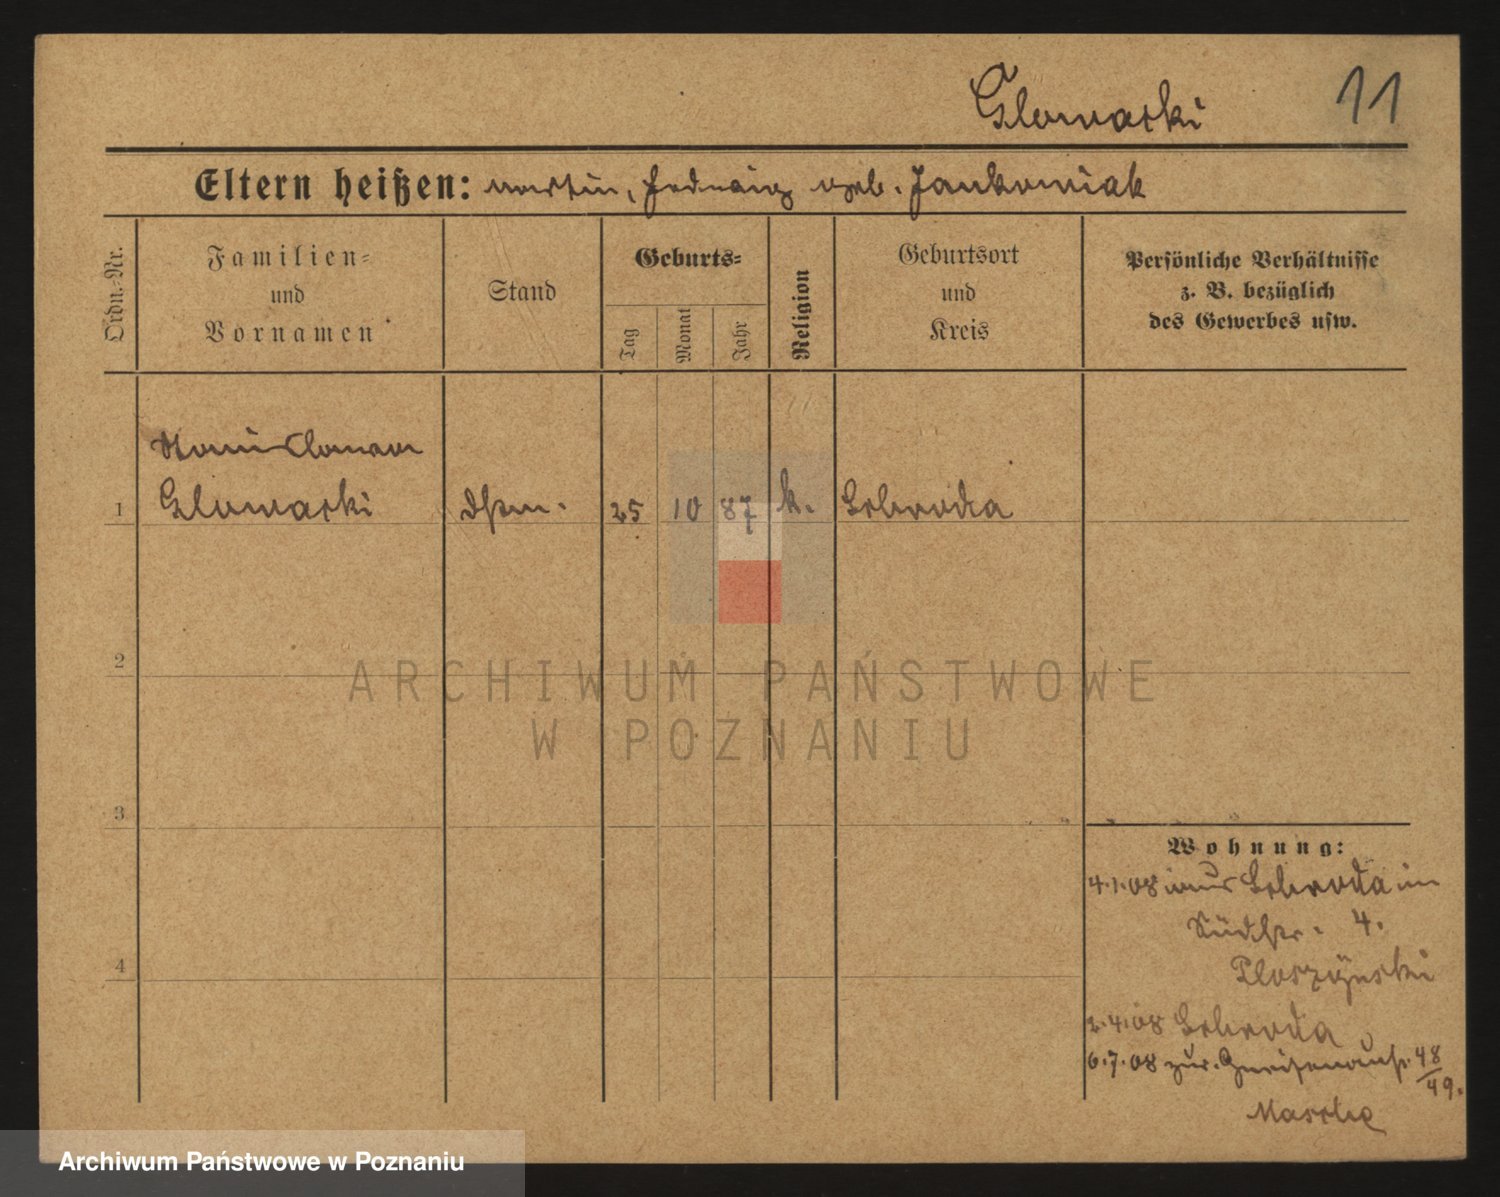 Glowacki 11
Eltern heißen: Martin, Hedwig geb. Jankowiak
Ordn.-Nr.
Familien-
und
Vornamen
Stand
Geburts-
Tag
Monat
Jahr
Religion
Geburtsort
und
Kreis
Persönliche Verhältnisse
z. B. bezüglich
des Gewerbes usw.
Stanislawa
1 Glowacki 25 10 87 k. Schroda
2
ARCHIWUM PAŃSTWOWE
W POZNANIU
3
Wohnung:
4.1.08 aus Schroda in
Südstr. 4.
4
2.4.08 Schroda
6.7.08 zur. Gneisenaustr. 48/49.
Archiwum Państwowe w Poznaniu